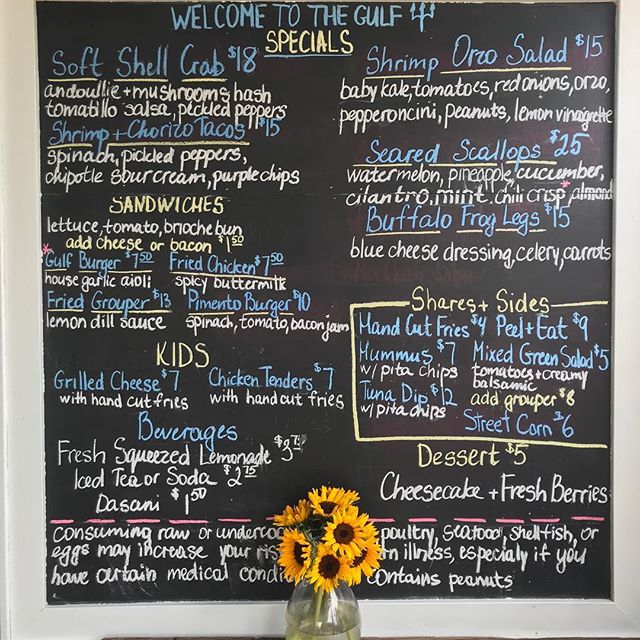 WELCOME TO THE GULF
SPECIALS
Soft Shell Crab $18
andoullie + mushrooms hash
tomatillo salsa, pickled peppers
Shrimp + Chorizo Tacos $15
spinach, pickled peppers,
chipotle sour cream, purple chips
Shrimp Orzo Salad $15
baby kale, tomatoes, red onions, orzo,
pepperoncini, peanuts, lemon vinaigrette
Seared Scallops $25
watermelon, pineapple, cucumber,
cilantro, mint, chili crisp, almond
Buffalo Frog Legs $15
blue cheese dressing, celery, carrots
SANDWICHES
lettuce, tomato, brioche bun
add cheese or bacon $1.50
*Gulf Burger $7.50 Fried Chicken $7.50
house garlic aioli spicy buttermilk
Fried Grouper $13 Pimento Burger $10
lemon dill sauce spinach, tomato, bacon jam
KIDS
Grilled Cheese $7 Chicken Tenders $7
with hand cut fries with hand cut fries
Beverages
Fresh Squeezed Lemonade $3.75
Iced Tea or Soda $2.75
Dasani $1.50
Shares + Sides
Hand Cut Fries $4 Peel + Eat $9
Hummus $7 Mixed Green Salad $5
w/ pita chips tomatoes + creamy
balsamic
Tuna Dip $12 add grouper $8
w/ pita chips
Street Corn $6
Dessert $5
Cheesecake + Fresh Berries
consuming raw or poultry, seafood, shellfish, or
eggs may increase your illness, especialy if you
have certain medical contains peanuts